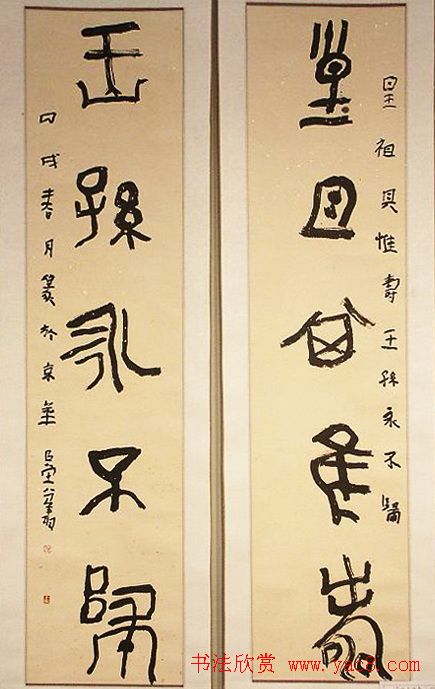 皇祖其惟壽王孫永不歸
皇且其隹壽
王孫永不歸
丙戌春月篆於京華
书法欣赏 www.yac8.com